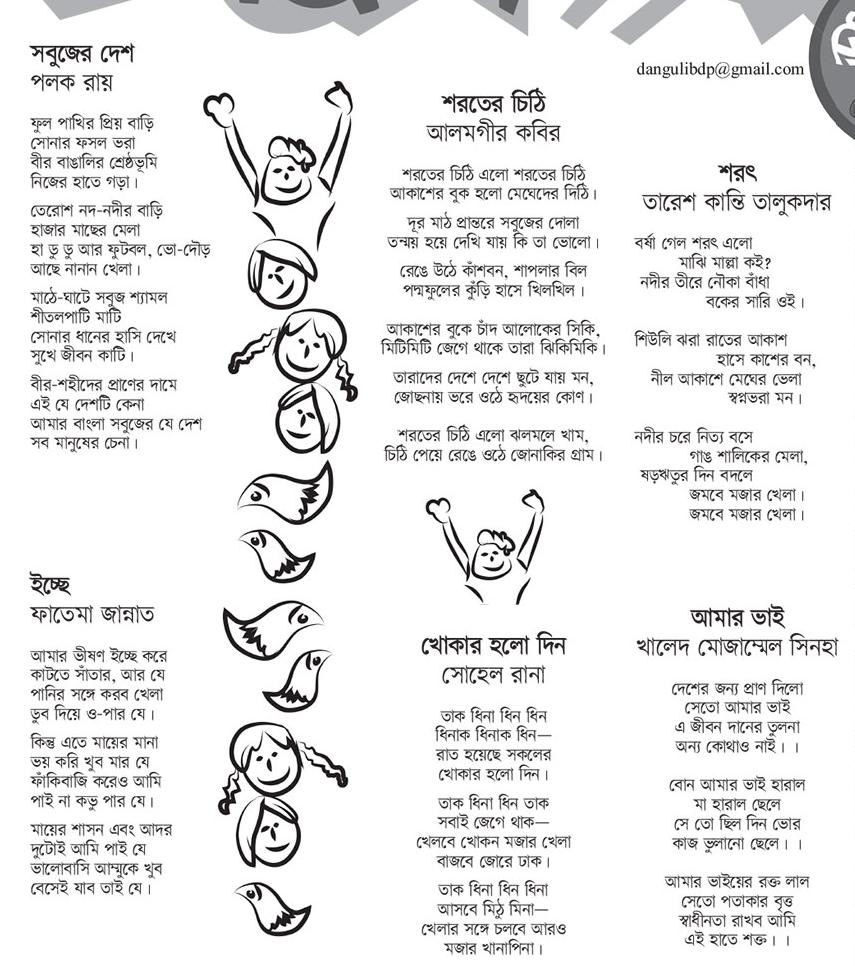 সবুজের দেশ
পলক রায়
ফুল পাখির প্রিয় বাড়ি
সোনার ফসল ভরা
বীর বাঙালির শ্রেষ্ঠভূমি
নিজের হাতে গড়া।
তেরোশ নদ-নদীর বাড়ি
হাজার মাছের মেলা
হা ডু ডু আর ফুটবল, ভো-দৌড়
আছে নানান খেলা।
মাঠে-ঘাটে সবুজ শ্যামল
শীতলপাটি মাটি
সোনার ধানের হাসি দেখে
সুখে জীবন কাটি।
বীর-শহীদের প্রাণের দামে
এই যে দেশটি কেনা
আমার বাংলা সবুজের যে দেশ
সব মানুষের চেনা।
ইচ্ছে
ফাতেমা জান্নাত
আমার ভীষণ ইচ্ছে করে
কাটতে সাঁতার, আর যে
পানির সঙ্গে করব খেলা
ডুব দিয়ে ও-পার যে।
কিন্তু এতে মায়ের মানা
ভয় করি খুব মার যে
ফাঁকিবাজি করেও আমি
পাই না কভু পার যে।
মায়ের শাসন এবং আদর
দুটোই আমি পাই যে
ভালোবাসি আম্মুকে খুব
বেসেই যাব তাই যে।
শরতের চিঠি
আলমগীর কবির
শরতের চিঠি এলো শরতের চিঠি
আকাশের বুক হলো মেঘেদের দিঠি।
দূর মাঠ প্রান্তরে সবুজের দোলা
তন্ময় হয়ে দেখি যায় কি তা ভোলো।
রেঙে উঠে কাঁশবন, শাপলার বিল
পদ্মফুলের কুঁড়ি হাসে খিলখিল।
আকাশের বুকে চাঁদ আলোকের সিকি,
মিটিমিটি জেগে থাকে তারা ঝিকিমিকি।
তারাদের দেশে দেশে ছুটে যায় মন,
জোছনায় ভরে ওঠে হৃদয়ের কোণ।
শরতের চিঠি এলো ঝলমলে খাম,
চিঠি পেয়ে রেঙে ওঠে জোনাকির গ্রাম।
খোকার হলো দিন
সোহেল রানা
তাক ধিনা ধিন ধিন
ধিনাক ধিনাক ধিন—
রাত হয়েছে সকলের
খোকার হলো দিন।
তাক ধিনা ধিন তাক
সবাই জেগে থাক—
খেলবে খোকন মজার খেলা
বাজবে জোরে ঢাক।
তাক ধিনা ধিন ধিনা
আসবে মিঠু মিনা—
খেলার সঙ্গে চলবে আরও
মজার খানাপিনা।
dangulibdp@gmail.com
শরৎ
তারেশ কান্তি তালুকদার
বর্ষা গেল শরৎ এলো
মাঝি মাল্লা কই?
নদীর তীরে নৌকা বাঁধা
বকের সারি ওই।
শিউলি ঝরা রাতের আকাশ
হাসে কাশের বন,
নীল আকাশে মেঘের ভেলা
স্বপ্নভরা মন।
নদীর চরে নিত্য বসে
গাঙ শালিকের মেলা,
ষড়ঋতুর দিন বদলে
জমবে মজার খেলা।
জমবে মজার খেলা।
আমার ভাই
খালেদ মোজাম্মেল সিনহা
দেশের জন্য প্রাণ দিলো
সেতো আমার ভাই
এ জীবন দানের তুলনা
অন্য কোথাও নাই। ।
বোন আমার ভাই হারাল
মা হারাল ছেলে
সে তো ছিল দিন ভোর
কাজ ভুলানো ছেলে। ।
আমার ভাইয়ের রক্ত লাল
সেতো পতাকার বৃত্ত
স্বাধীনতা রাখব আমি
এই হাতে শক্ত। ।